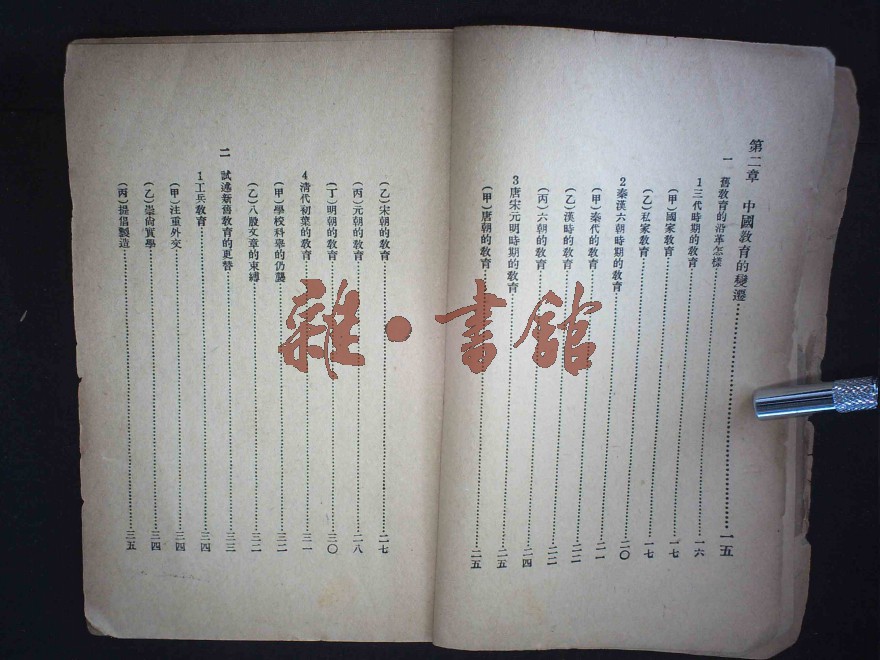 第二章 中國教育的變遷……一五
一 舊教育的沿革怎樣……一六
1三代時期的教育……一七
(甲)國家教育……一七
(乙)私家教育……二〇
2秦漢六朝時期的教育……二一
(甲)秦代的教育……二二
(乙)漢時的教育……二二
(丙)六朝的教育……二四
3唐宋元明時期的教育……二五
(甲)唐朝的教育……二五
(乙)宋朝的教育……二七
(丙)元朝的教育……二八
(丁)明朝的教育……三〇
4清代初葉的教育……三一
(甲)學校科舉的仍襲……三二
(乙)八股文章的束縛……三二
二 試述新舊教育的更替……三三
1工兵教育……三四
(甲)注重外交……三四
(乙)崇尚實學……三四
(丙)提倡製造……三五
雜·書館